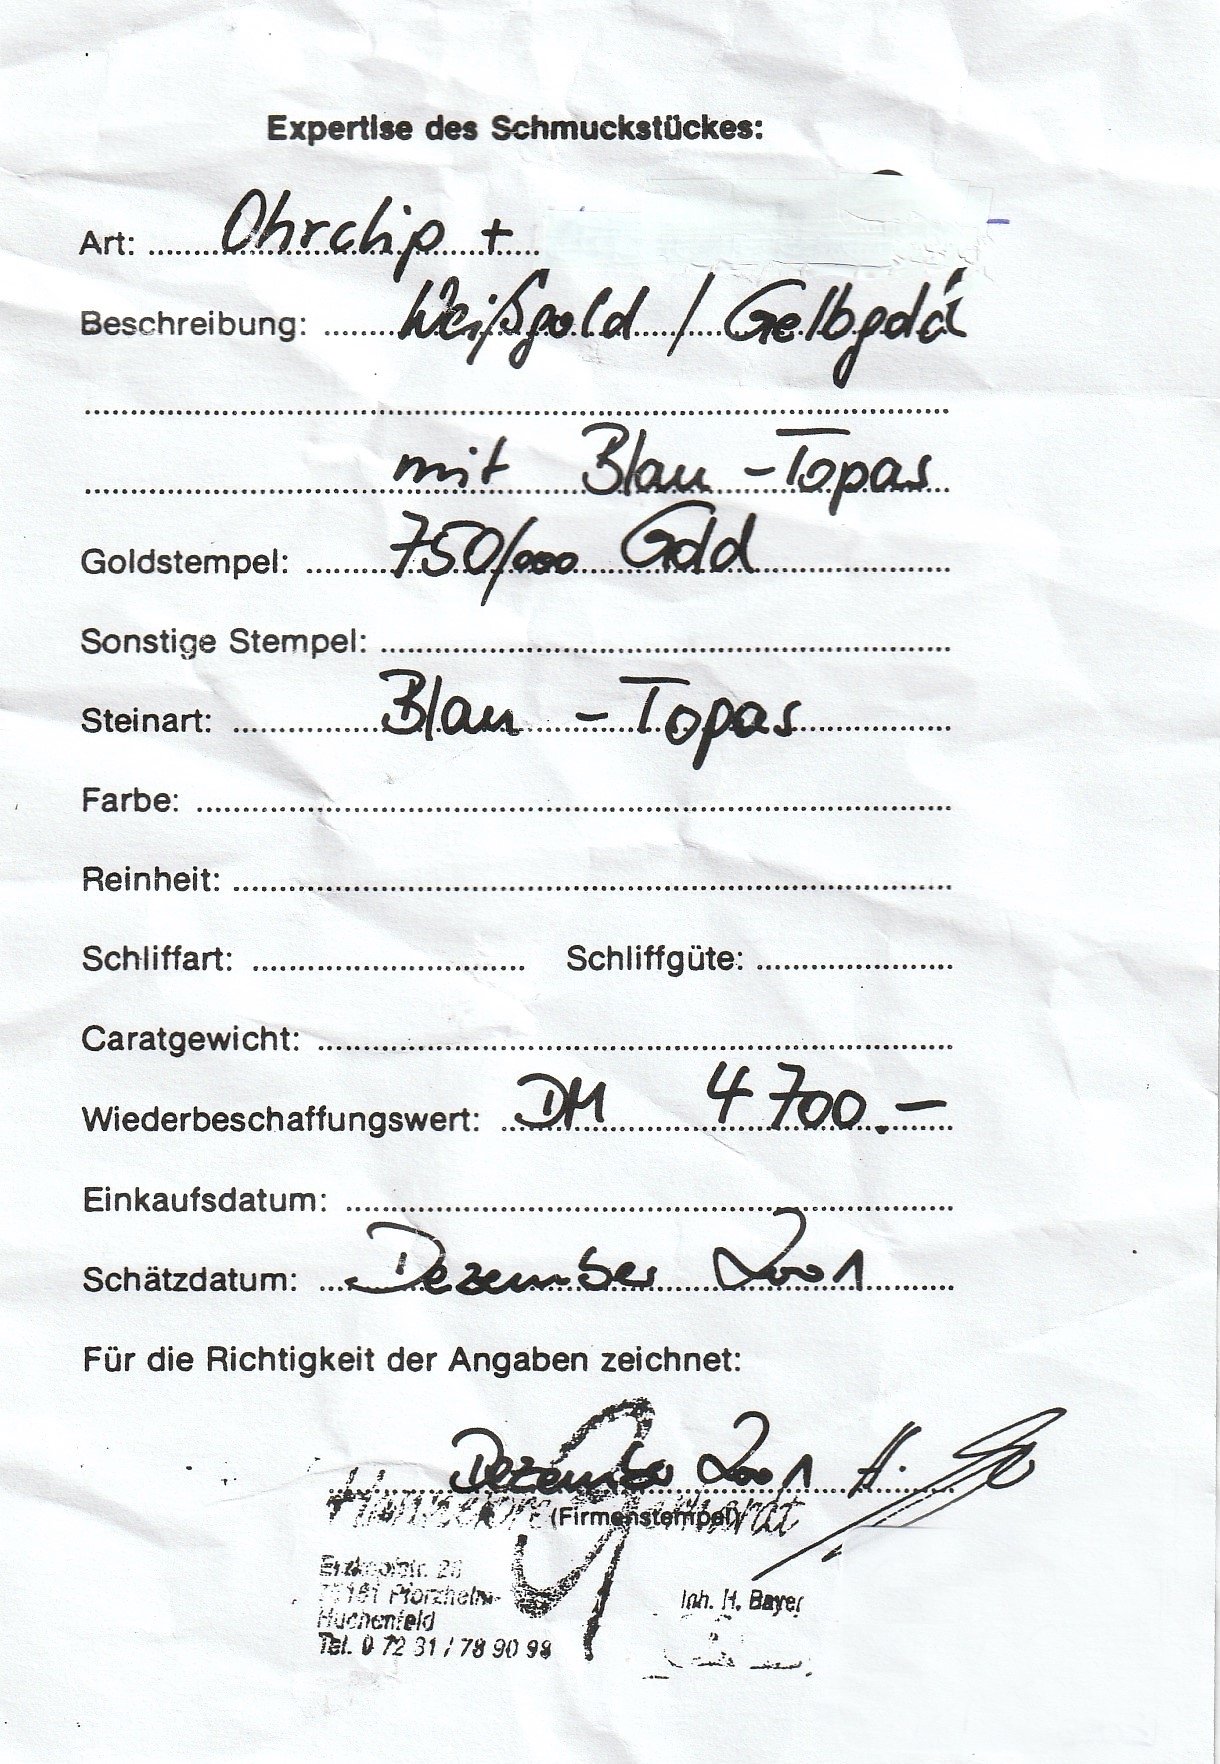 Expertise des Schmuckstückes:
Art: Ohrclip +
Beschreibung: Weißgold / Gelbgold
mit Blau - Topas
Goldstempel: 750/000 Gold
Sonstige Stempel:
Steinart: Blau - Topas
Farbe:
Reinheit:
Schliffart: Schliffgüte:
Caratgewicht:
Wiederbeschaffungswert: DM 4700.-
Einkaufsdatum:
Schätzdatum: Dezember 2001
Für die Richtigkeit der Angaben zeichnet:
Dezember 2001 H.
(Firmenstempel)
Pforzheim-
Inh. H. Bayer
Huchenfeld
Tel. 0 72 31 / 78 90 98